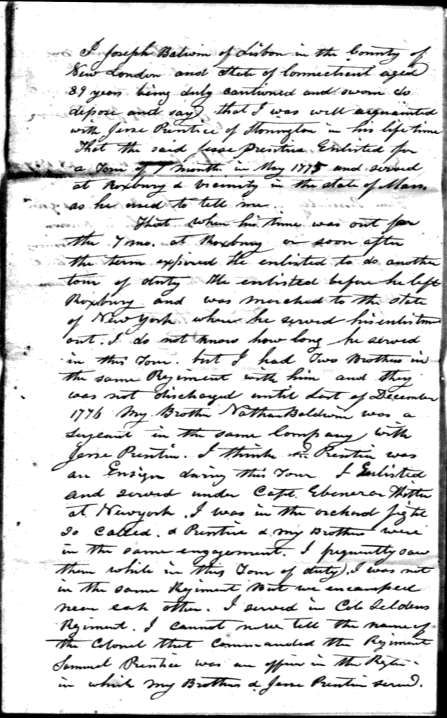 I Joseph Balwin of Lisbon in the County of
New London and State of Connecticut aged
89 years being duly cautioned and sworn do
depose and say, that I was well acquainted
with Jesse Prentice of Stonington in his life time
That the said Jesse Prentice Enlisted for
a Tour of 7 month in May 1775 and served
at Roxbury & vicinity in the state of Mass.
as he used to tell me.
That when his time was out for
the 7 mo. at Roxbury or soon after
the term expired he enlisted to do another
tour of duty He enlisted before he left
Roxbury and was marched to the state
of New York where he served his enlistm
out. I do not know how long he served
in this Tour. but I had Two Brothers in
the same Regiment with him and they
was not discharged until last of December
1776 My Brother Nathan Baldwin was a
Sergeant in the same Company with
Jesse Prentice. I think Prentice was
an Ensign during this Tour I Enlisted
and served under Capt. Ebenezer
at Newyork. I was in the orchard fight
so called. & Prentice & my Brothers were
in the same engagement. I frequently saw
them while in this Tour of duty). I was not
in the same Regiment But we encamped
near each other. I served in Col. Seldens
Regiment. I cannot now tell the name of
the Colonel that commanded the Regiment
Samuel Prentice was an officer in the
in which my Brothers & Jesse Prentice served.